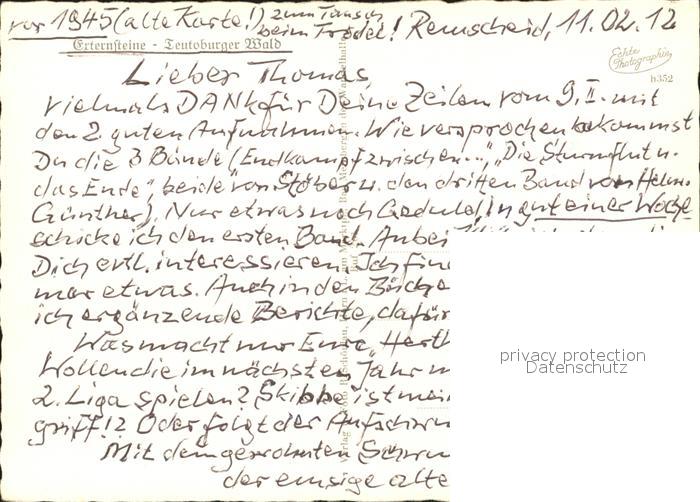 vor 1945 (alte Karte!) zum Tausch
beim Trödel! Remscheid, 11.02.12
Externsteine - Teutoburger Wald
Echte
Photographie
h352
Lieber Thomas,
vielmals DANK für Deine Zeilen vom 9.II. mit
den 2 guten Aufnahmen. Wie versprochen bekommst
Du die 3 Bände (Endkampf zwischen...", "Die Sturmflut u.
das Ende", beide von Stöber u. den dritten Band von Helm.
Günther). Nur etwas noch Geduld, in gut einer Woche
schicke ich den ersten Band. Anbei
Dich evtl. interessieren. Ich
mer etwas. Auch in den
ich ergänzende Berichte, dafür
Was macht nur Eure "Herth
Wollen die im nächsten Jahr
2. Liga spielen? Skibbe ist
griff!? Oder folgt der
Mit dem gewohnten
der emsige alte
privacy protection
Datenschutz